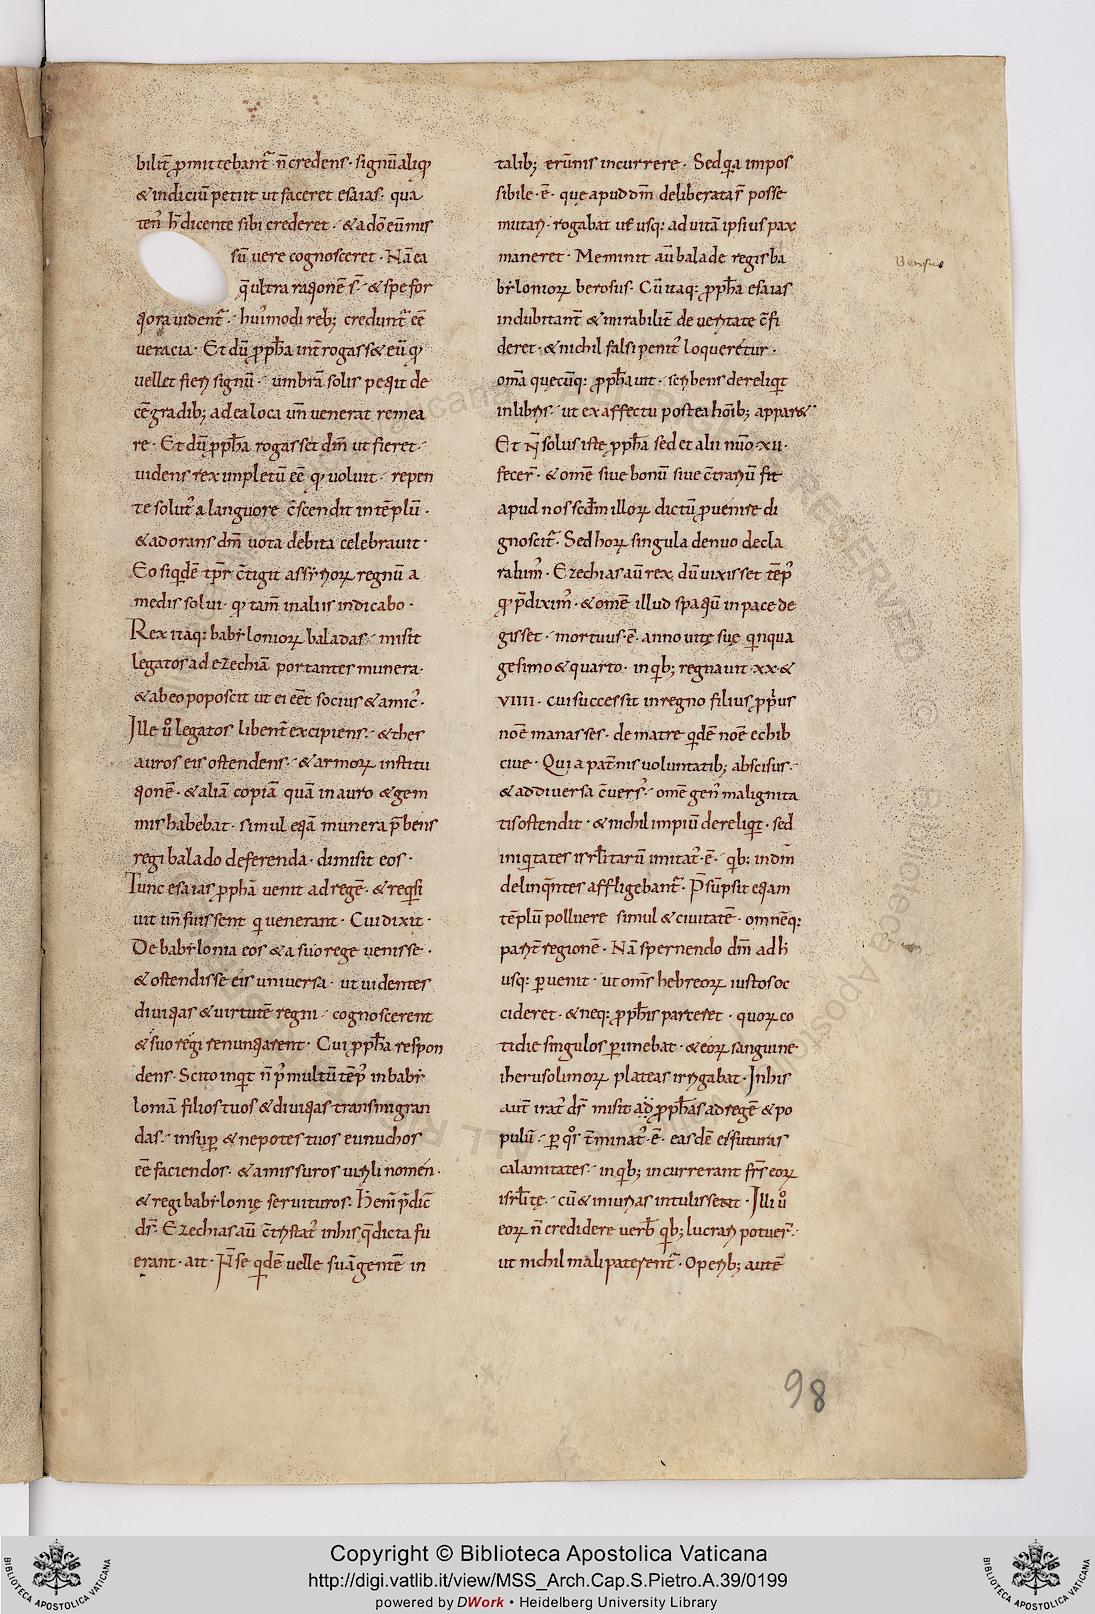 bilit̄ p̄mittebant᷑ n̄ credens · signū aliq̈
& indiciū petiit ut faceret esaias · qua
ten᷑ h̄ dicente sibi crederet · & a dō eū mis
sū vere cognosceret · Nā ea
q̄ ultra raꝗonē s̄ · & spe for
ꝗora vident᷑ · hui᷑modi reb; credunt᷑ eē
veracia · Et dū ꝓph̄a int̄rogass& eū q̈
vellet fieri signū · umbrā solis peꝗit de
cē gradib; ad ea loca un̄ venerat remea
re · Et dū ꝓph̄a rogasset dm̄ ut fieret ·
videns rex impletū eē q̈ voluit · repen
te solut᷑ a languore c̄scendit in tēplū ·
& adorans dm̄ vota debita celebravit ·
Eo siqdē tp̄r c̄tigit assyrioꝝ regnū a
medis solui · q̈ tam̄ in aliis indicabo ·
Rex itaq: babẏlonioꝝ baladas · misit
legatos ad ezechiā portantes munera ·
& ab eo poposcit ut ei eēt socius & amic᷑ ·
Ille u᷑o legatos libent̄ excipiens · & thes
auros eis ostendens · & armoꝝ institu
ꝗonē · & aliā copiā quā in auro & gem
mis habebat · simul eꝗā munera p̄bens
regi balado deferenda · dimisit eos ·
Tunc esaias ꝓph̄a venit ad regē · & reqsi
vit un̄ fuissent q venerant · Cui dixit ·
De babẏlonia eos & a suo rege venisse ·
& ostendisse eis universa · ut videntes
diviꝗas & virtutē regni · cognoscerent
& suo regi renunꝗarent · Cui ꝓph̄a respon
dens · Scito inqt n̄ p᷑ multū tēp᷑ in babẏ
loniā filios tuos & diviꝗas transmigran
das · insuꝑ & nepotes tuos eunuchos
eē faciendos · & amissuros virili nomen ·
& regi babẏlonię servituros · H̄ enī p̄dic̄
ds̄ · Ezechias aū c̄tristat᷑ in his q̄ dicta fu
erant · ait · N̄ se qdē velle suā gentē in
talib; erūnis incurrere · Sed qa impos
sibile · ē · que apud dm̄ deliberata s̄ posse
mutari · rogabat ut̄ usq: ad vitā ipsius pax
maneret · Meminit aū balade regis ba
bẏlonioꝝ berosus · Cū itaq: ꝓph̄a esaias
indubitant̄ & mirabilit̄ de veritate c̄fi
deret · & nichil falsi penit᷑ loqueretur ·
om̄a quecūq: ꝓph̄avit · scribens dereliqt
in libris · ut ex affectu postea hoīb; appar&
Et n̄ solus iste ꝓph̄a sed et alii nūo · xii ·
fecer̄ · & omē sive bonū sive c̄trariū fit
apud nos scd̄m illoꝝ dictū ꝓvenire di
gnoscit᷑ · Sed hoꝝ singula denuo decla
rabim᷑ · Ezechias aū rex dū vixisset tēp᷑
q̈ p̄dixim᷑ · & omē illud spaꝗū in pace de
gisset · mortuus · ē · anno vitę suę qnqua
gesimo & quarto · in qb; regnavit · xx · &
viiii · cui successit in regno filius ꝓp᷑us
noē manasses · de matre qdē noē echib
cive · Qui a pat̄nis voluntatib; abscisus ·
& ad diversa c̄vers᷑ · omē gen᷑ malignita
tis ostendit · & nichil impiū dereliqt · sed
iniqtates isrl̄itarū imitat᷑ · ē · qb: in dm̄
delinq̄ntes affligebant᷑ · P̄sūpsit eꝗam
tēplū polluere simul & civitatē · omnēq:
pariT regionē · Nā spernendo dm̄ ad h̄
usq: ꝑvenit · ut om̄s hebreoꝝ iustos oc
cideret · & neq: ꝓph̄is parceret · quoꝝ co
tidie singulos ꝑimebat · & eoꝝ sanguine
iherusolimoꝝ plateas irrigabat · In his
aut̄ irat᷑ ds̄ misit ad ꝓph̄as ad regē & po
pulū · ꝑ q᷑s c̄minat᷑ · ē · easdē eis futuras
calamitates · in qb; incurrerant fr̄s eoꝝ
isrl̄itę · cū & iniurias intulissent · Illi u᷑o
eoꝝ n̄ credidere verb̄ qb; lucrari potuer̄ ·
ut nichil mali paterent᷑ · Operib; autē
98
Copyright © Biblioteca Apostolica Vaticana
http://digi.vatlib.it/view/MSS_Arch.Cap.S.Pietro.A.39/0199
powered by DWork • Heidelberg University Library